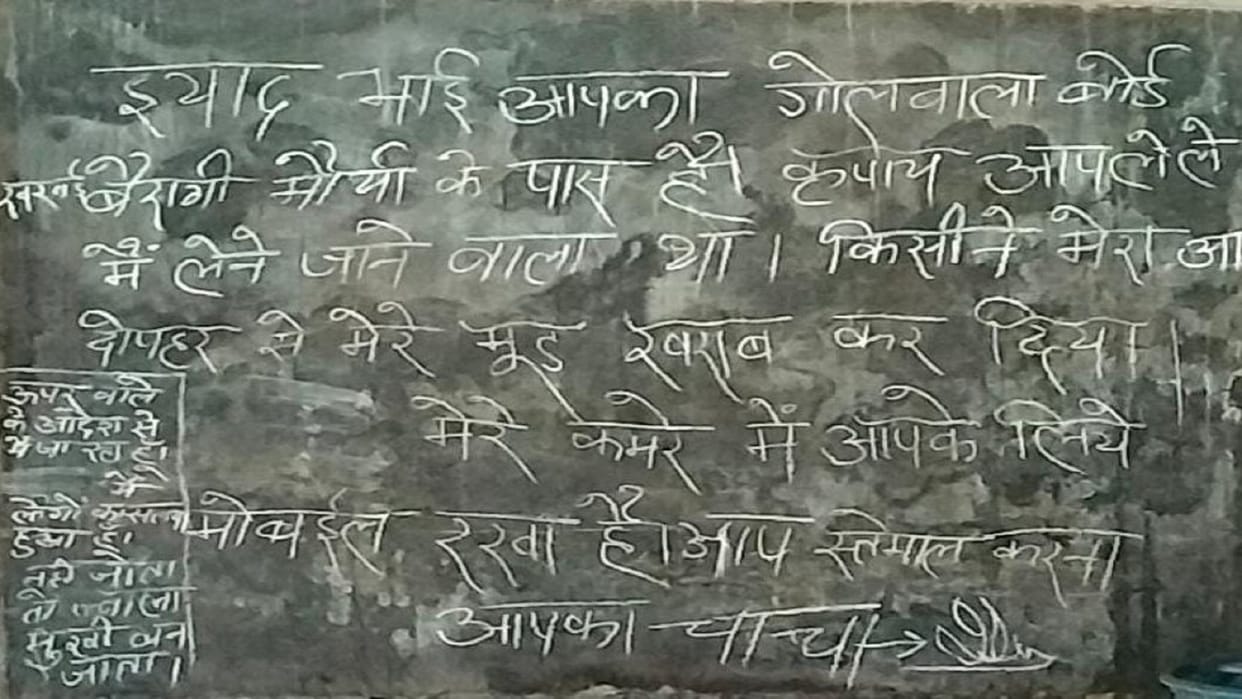 इयाद भाई आपका गोलवाला बोर्ड
बैरागी मौर्या के पास है। कृपाय आप लेले
मैं लेने जाने वाला था। किसीने मेरा आ
दोपहर से मेरे मूड खराब कर दिया।
मेरे कमरे में आपके लिये
मोबईल रखा है। आप स्तेमाल करना
आपका चाचा →
ऊपर वाले
के आदेश से
मैं
लोगों
हुआ है।
नही जाता
तो
सुखी बन
जाता।